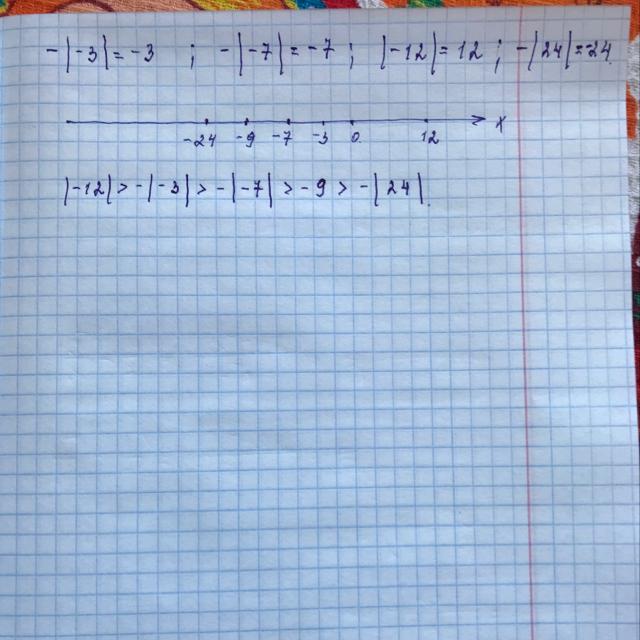 -|-3| = -3 ; -|-7| = -7 ; |-12| = 12 ; -|24| = -24
-24 -9 -7 -3 0 12 x
|-12| > -|-3| > -|-7| > -9 > -|24|.